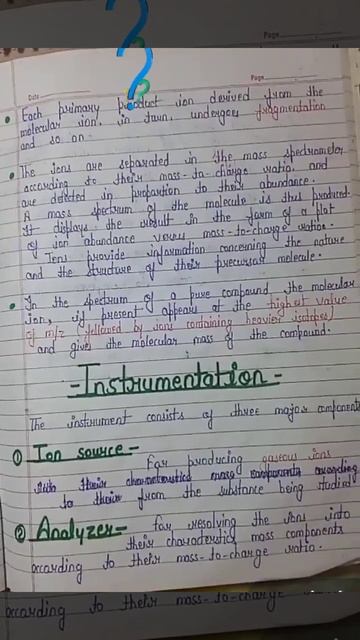 Page
Date
Page
• Each primary product ion derived from the
molecular ion, in turn, undergoes fragmentation
and so on.
• The ions are separated in the mass spectrometer,
according to their mass-to-charge ratio, and
are detected in proportion to their abundance.
A mass spectrum of the molecule is thus produced.
It displays the result in the form of a plot
of ion abundance versus mass-to-charge ratio.
Ions provide information concerning the nature
and the structure of their precursor molecule.
• In the spectrum of a pure compound, the molecular
ion, if present appears at the highest value
of m/z followed by ions containing heavier isotopes
and gives the molecular mass of the compound.
-Instrumentation-
The instrument consists of three major components
① Ion source-
For producing gaseous ions
into their characteristics mass components according
to their from the substance being studied
② Analyzer- for resolving the ions into
their characteristics mass components
according to their mass-to-charge ratio.
according to their mass-to-charge